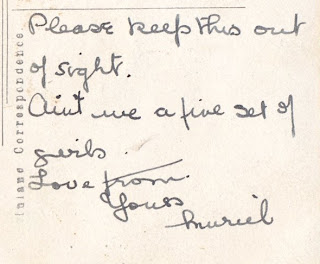 Please keep this out
of sight.
Aint we a fine set of
girls.
Love from.
Yours
Muriel
Inland Correspondence